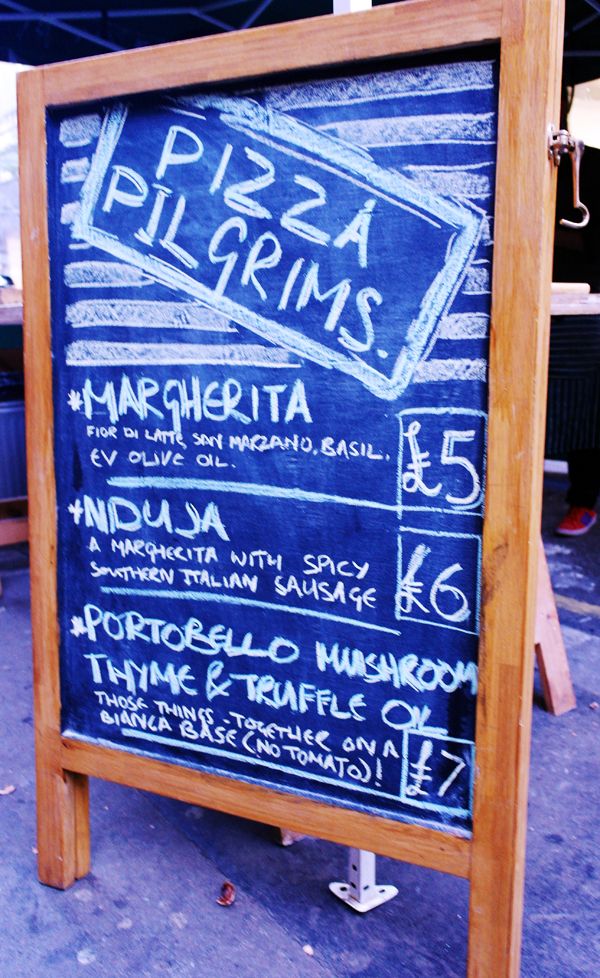 PIZZA
PILGRIMS.
*MARGHERITA
FIOR DI LATTE, SAN MARZANO, BASIL.
EV OLIVE OIL.
£5
*NDUJA
A MARGHERITA WITH SPICY
SOUTHERN ITALIAN SAUSAGE
£6
*PORTOBELLO MUSHROOM
THYME & TRUFFLE OIL
THOSE THINGS - TOGETHER ON A
BIANCA BASE (NO TOMATO)!
£7